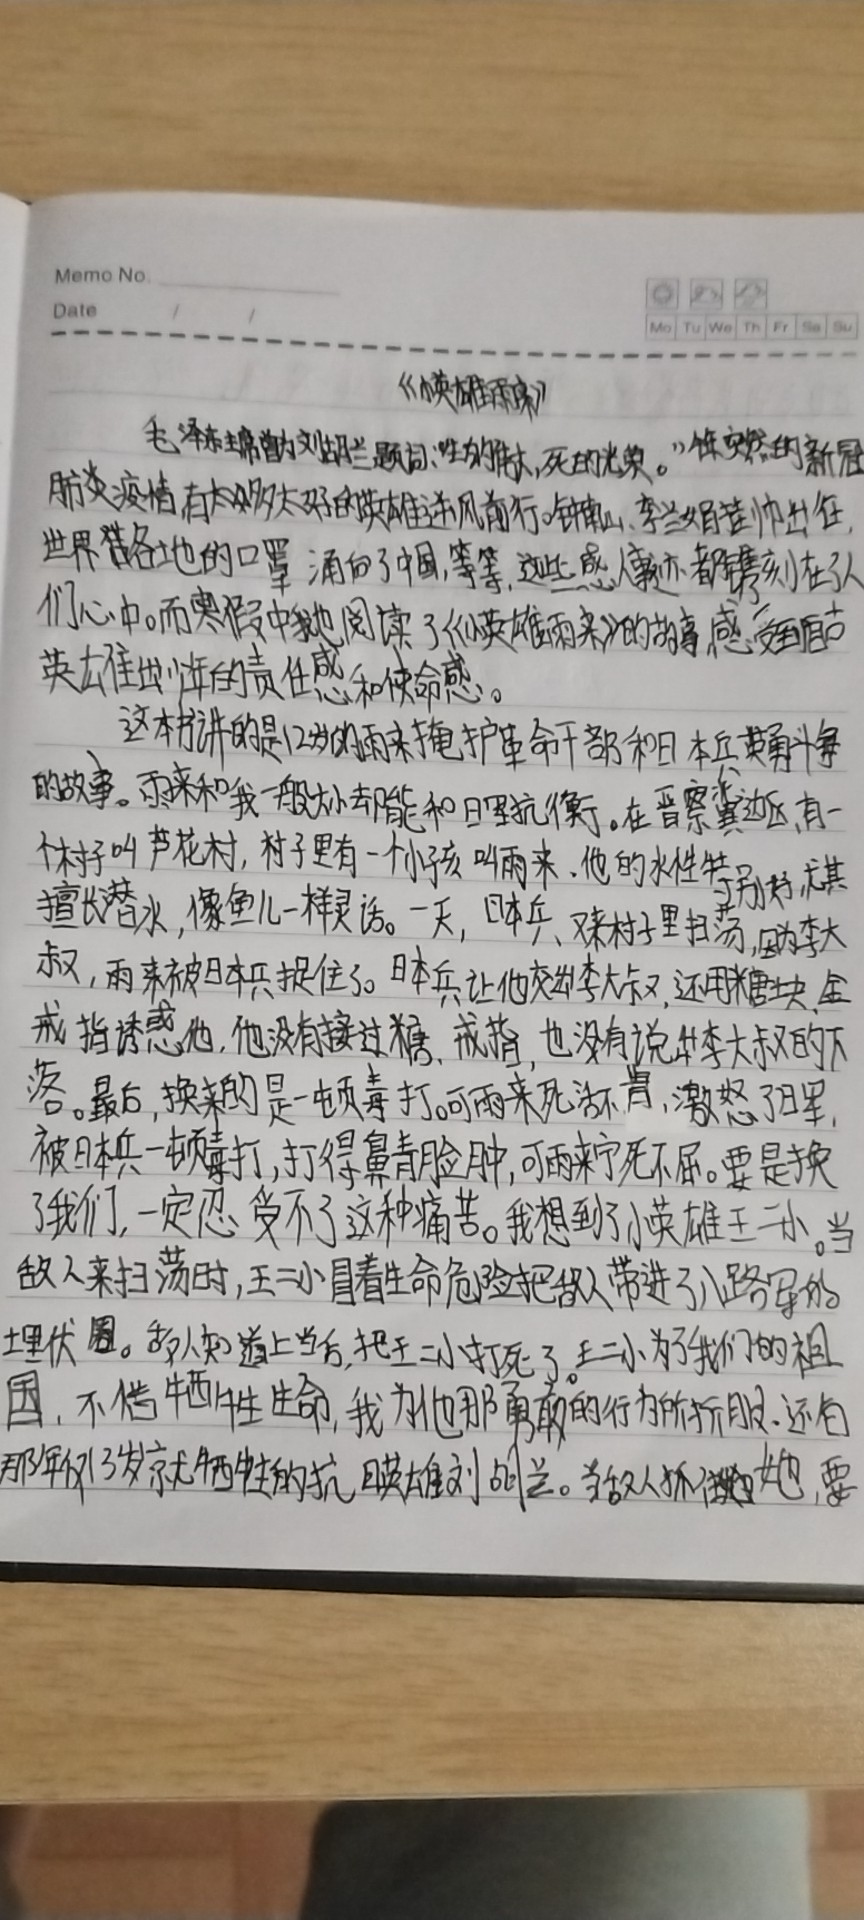 Memo No.
Date / /
Mo Tu We Th Fr Sa Su
《小英雄雨来》
毛泽东主席曾为刘胡兰题词:“生的伟大,死的光荣。”今年突然的新冠
肺炎疫情,有太多太多太好的英雄逆风前行。钟南山、李兰娟挂帅出征,
世界各地的口罩涌向了中国,等等,这些感人事迹都镌刻在了人
们心中。而寒假中我也阅读了《小英雄雨来》的故事,感受到
英雄少年的责任感和使命感。
这本书讲的是12岁的雨来掩护革命干部和日本兵英勇斗争
的故事。雨来和我一般大小却能和日军抗衡。在晋察冀边区,有一
个村子叫芦花村,村子里有一个小孩叫雨来、他的水性特别好,尤其
擅长潜水,像鱼儿一样灵活。一天,日本兵又来村子里扫荡,因为李大
叔,雨来被日本兵捉住了。日本兵让他交出李大叔,还用糖块、金
戒指诱惑他,他没有接过糖、戒指,也没有说出李大叔的下
落。最后,换来的是一顿毒打。可雨来死活不肯,激怒了日军,
被日本兵一顿毒打,打得鼻青脸肿,可雨来宁死不屈。要是换
了我们,一定忍受不了这种痛苦。我想到了小英雄王二小。当
敌人来扫荡时,王二小冒着生命危险把敌人带进了八路军的
埋伏圈。敌人知道上当后,把王二小打死了。王二小为了我们的祖
国,不惜牺牲生命,我为他那勇敢的行为所折服。还有
那年仅13岁就牺牲的抗日英雄刘胡兰。当敌人抓住她,要